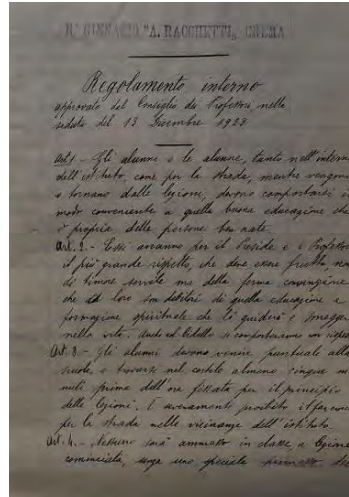 R. GINNASIO "A. RACCHETTI" CREMA
Regolamento interno
approvato dal Consiglio dei Professori nella
seduta del 13 Dicembre 1923
Art. 1 - Gli alunni e le alunne, tanto nell'interno
dell'istituto, come per la strada, mentre vengono
o tornano dalle lezioni, devono comportarsi in
modo conveniente a quella buona educazione che
è propria delle persone ben nate.
Art. 2. - Essi avranno per il Preside e i Professori
il più grande rispetto, che deve essere frutto, non
di timore servile ma della ferma convinzione
che ad loro son debitori di quella educazione e
formazione spirituale che li guiderà e sorreggerà
nella vita. Anche col bidello si comporteranno con rispetto
Art. 3 - Gli alunni devono venire puntuali alla
scuola, e trovarsi nel cortile almeno cinque mi
nuti prima dell'ora fissata per il principio
delle lezioni. È severamente proibito il
per la strada nelle vicinanze dell'istituto.
Art. 4. - Nessuno sarà ammesso in classe, a lezione
cominciata, senza uno speciale permesso del